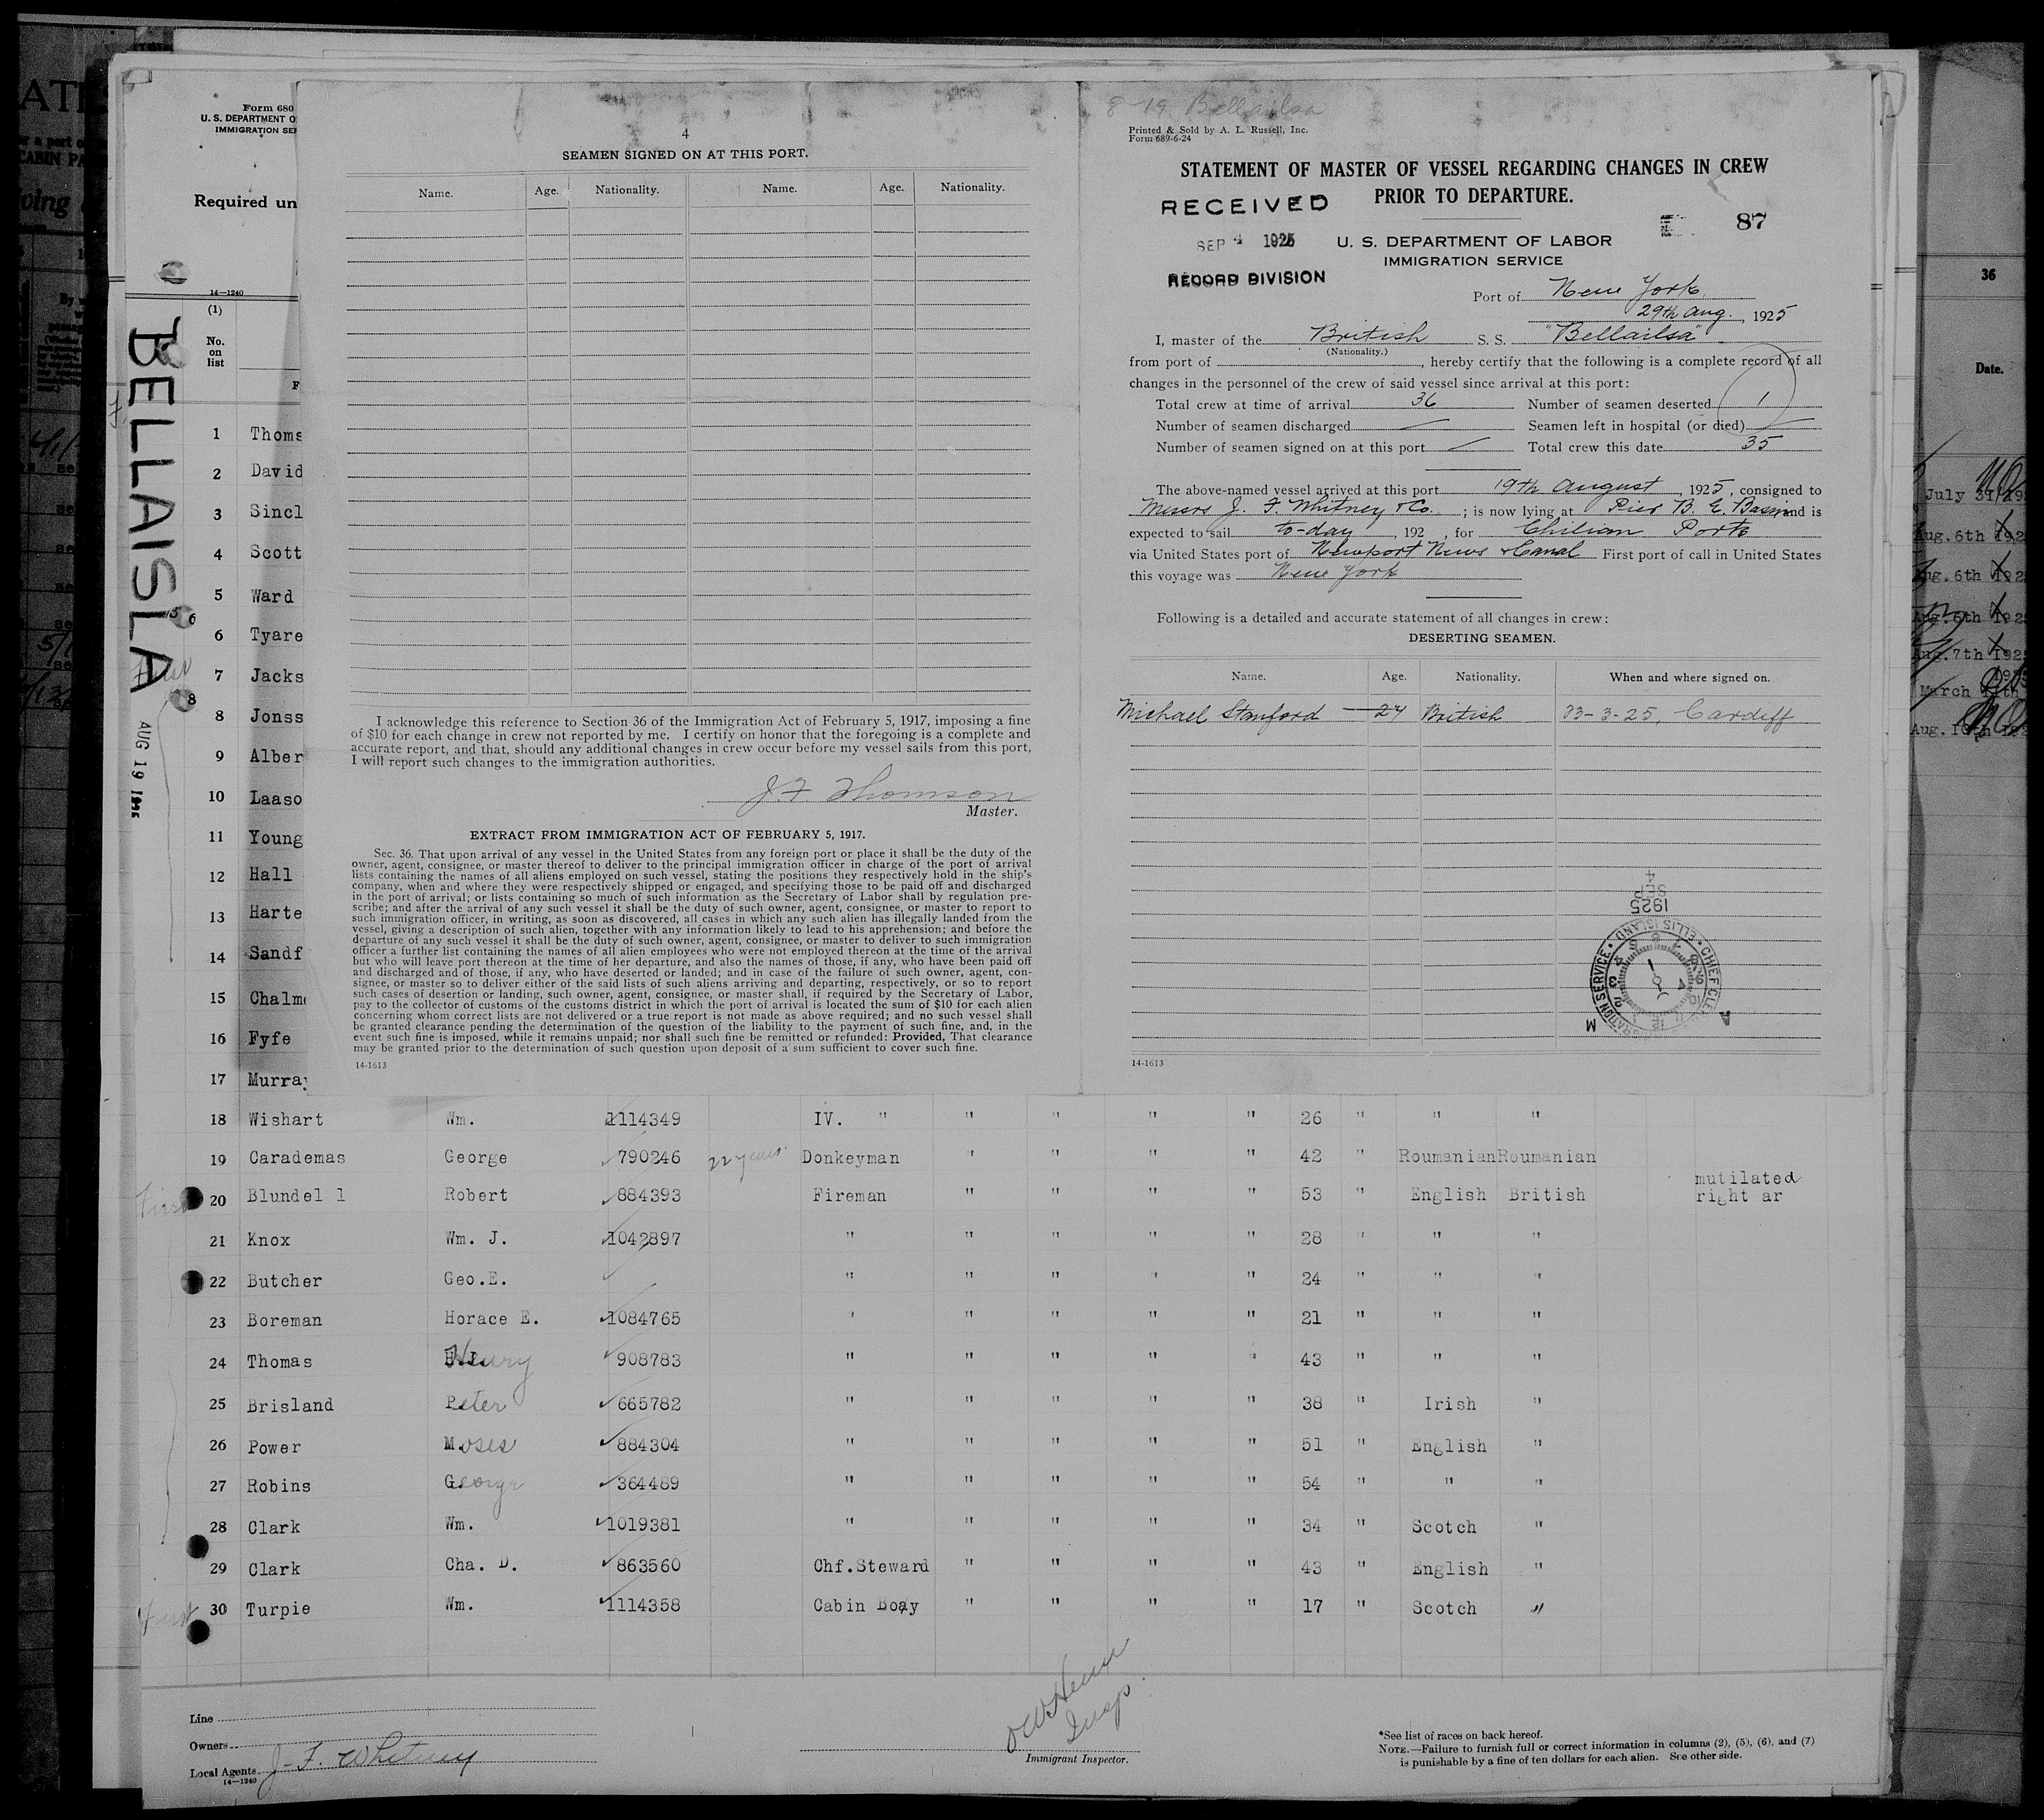 Form 680
U. S. DEPARTMENT O
IMMIGRATION SE
Required un
14—1240
(1)
No.
on
list
F
BELLAISLA
AUG 19 1925
1 Thoms
2 David
3 Sincl
4 Scott
5 Ward
6 Tyare
7 Jacks
8 Jonss
9 Alber
10 Laaso
11 Young
12 Hall
13 Harte
14 Sandf
15 Chalm
16 Fyfe
17 Murray
4
SEAMEN SIGNED ON AT THIS PORT.
Name. Age. Nationality. Name. Age. Nationality.
I acknowledge this reference to Section 36 of the Immigration Act of February 5, 1917, imposing a fine
of $10 for each change in crew not reported by me. I certify on honor that the foregoing is a complete and
accurate report, and that, should any additional changes in crew occur before my vessel sails from this port,
I will report such changes to the immigration authorities.
J. F. Thomson
Master.
EXTRACT FROM IMMIGRATION ACT OF FEBRUARY 5, 1917.
Sec. 36. That upon arrival of any vessel in the United States from any foreign port or place it shall be the duty of the
owner, agent, consignee, or master thereof to deliver to the principal immigration officer in charge of the port of arrival
lists containing the names of all aliens employed on such vessel, stating the positions they respectively hold in the ship's
company, when and where they were respectively shipped or engaged, and specifying those to be paid off and discharged
in the port of arrival; or lists containing so much of such information as the Secretary of Labor shall by regulation pre-
scribe; and after the arrival of any such vessel it shall be the duty of such owner, agent, consignee, or master to report to
such immigration officer, in writing, as soon as discovered, all cases in which any such alien has illegally landed from the
vessel, giving a description of such alien, together with any information likely to lead to his apprehension; and before the
departure of any such vessel it shall be the duty of such owner, agent, consignee, or master to deliver to such immigration
officer a further list containing the names of all alien employees who were not employed thereon at the time of the arrival
but who will leave port thereon at the time of her departure, and also the names of those, if any, who have been paid off
and discharged and of those, if any, who have deserted or landed; and in case of the failure of such owner, agent, con-
signee, or master so to deliver either of the said lists of such aliens arriving and departing, respectively, or so to report
such cases of desertion or landing, such owner, agent, consignee, or master shall, if required by the Secretary of Labor,
pay to the collector of customs of the customs district in which the port of arrival is located the sum of $10 for each alien
concerning whom correct lists are not delivered or a true report is not made as above required; and no such vessel shall
be granted clearance pending the determination of the question of the liability to the payment of such fine, and, in the
event such fine is imposed, while it remains unpaid; nor shall such fine be remitted or refunded: Provided, That clearance
may be granted prior to the determination of such question upon deposit of a sum sufficient to cover such fine.
14-1613
8-19 Bellailsa
Printed & Sold by A. L. Russell, Inc.
Form 689-6-24
STATEMENT OF MASTER OF VESSEL REGARDING CHANGES IN CREW
PRIOR TO DEPARTURE.
RECEIVED
SEP 4 1925
RECORD DIVISION
87
U. S. DEPARTMENT OF LABOR
IMMIGRATION SERVICE
Port of New York
29th Aug., 1925
I, master of the British S. S. "Bellailsa"
(Nationality.)
from port of , hereby certify that the following is a complete record of all
changes in the personnel of the crew of said vessel since arrival at this port:
Total crew at time of arrival 36 Number of seamen deserted 1
Number of seamen discharged Seamen left in hospital (or died)
Number of seamen signed on at this port Total crew this date 35
The above-named vessel arrived at this port 19th August, 1925, consigned to
Messrs J. F. Whitney & Co. ; is now lying at Pier B. E. Basin and is
expected to sail to-day, 192 , for Chilian Ports
via United States port of Newport News & Canal First port of call in United States
this voyage was New York
Following is a detailed and accurate statement of all changes in crew:
DESERTING SEAMEN.
Name. Age. Nationality. When and where signed on.
Michael Stanford — 24 British 23-3-25, Cardiff
1925
SEP
4
IMMIGRATION SERVICE • ELLIS ISLAND • CHIEF CLE
A M
14-1613
18 Wishart Wm. 1114349 IV. " " " " " 26 " " "
19 Carademas George 790246 22 years Donkeyman " " " " 42 " Roumanian Roumanian
20 Blundel l Robert 884393 Fireman " " " " 53 " English British mutilated
right ar
21 Knox Wm. J. 1042897 " " " " " 28 " " "
22 Butcher Geo.E. " " " " " 24 " " "
23 Boreman Horace E. 1084765 " " " " " 21 " " "
24 Thomas Henry 908783 " " " " " 43 " " "
25 Brisland Peter 665782 " " " " " 38 " Irish "
26 Power Moses 884304 " " " " " 51 " English "
27 Robins George 364489 " " " " " 54 " " "
28 Clark Wm. 1019381 " " " " " 34 " Scotch "
29 Clark Cha. D. 863560 Chf.Steward " " " " 43 " English "
30 Turpie Wm. 1114358 Cabin Boay " " " " 17 " Scotch "
First
First
First
Line
Owners
Local Agents J. F. Whitney
14—1240
Insp.
Immigrant Inspector.
*See list of races on back hereof.
NOTE.—Failure to furnish full or correct information in columns (2), (5), (6), and (7)
is punishable by a fine of ten dollars for each alien. See other side.
36
Date.
July 31/192
Aug. 6th 192
Aug. 6th 192
Aug. 6th 192
Aug. 7th 192
March 11th